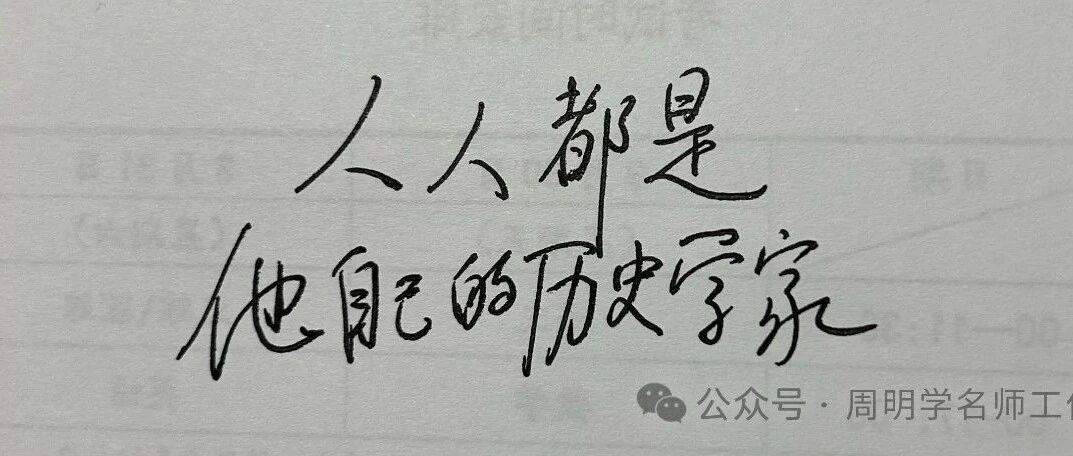 人人都是
他自己的历史学家
公众号·周明学名师工